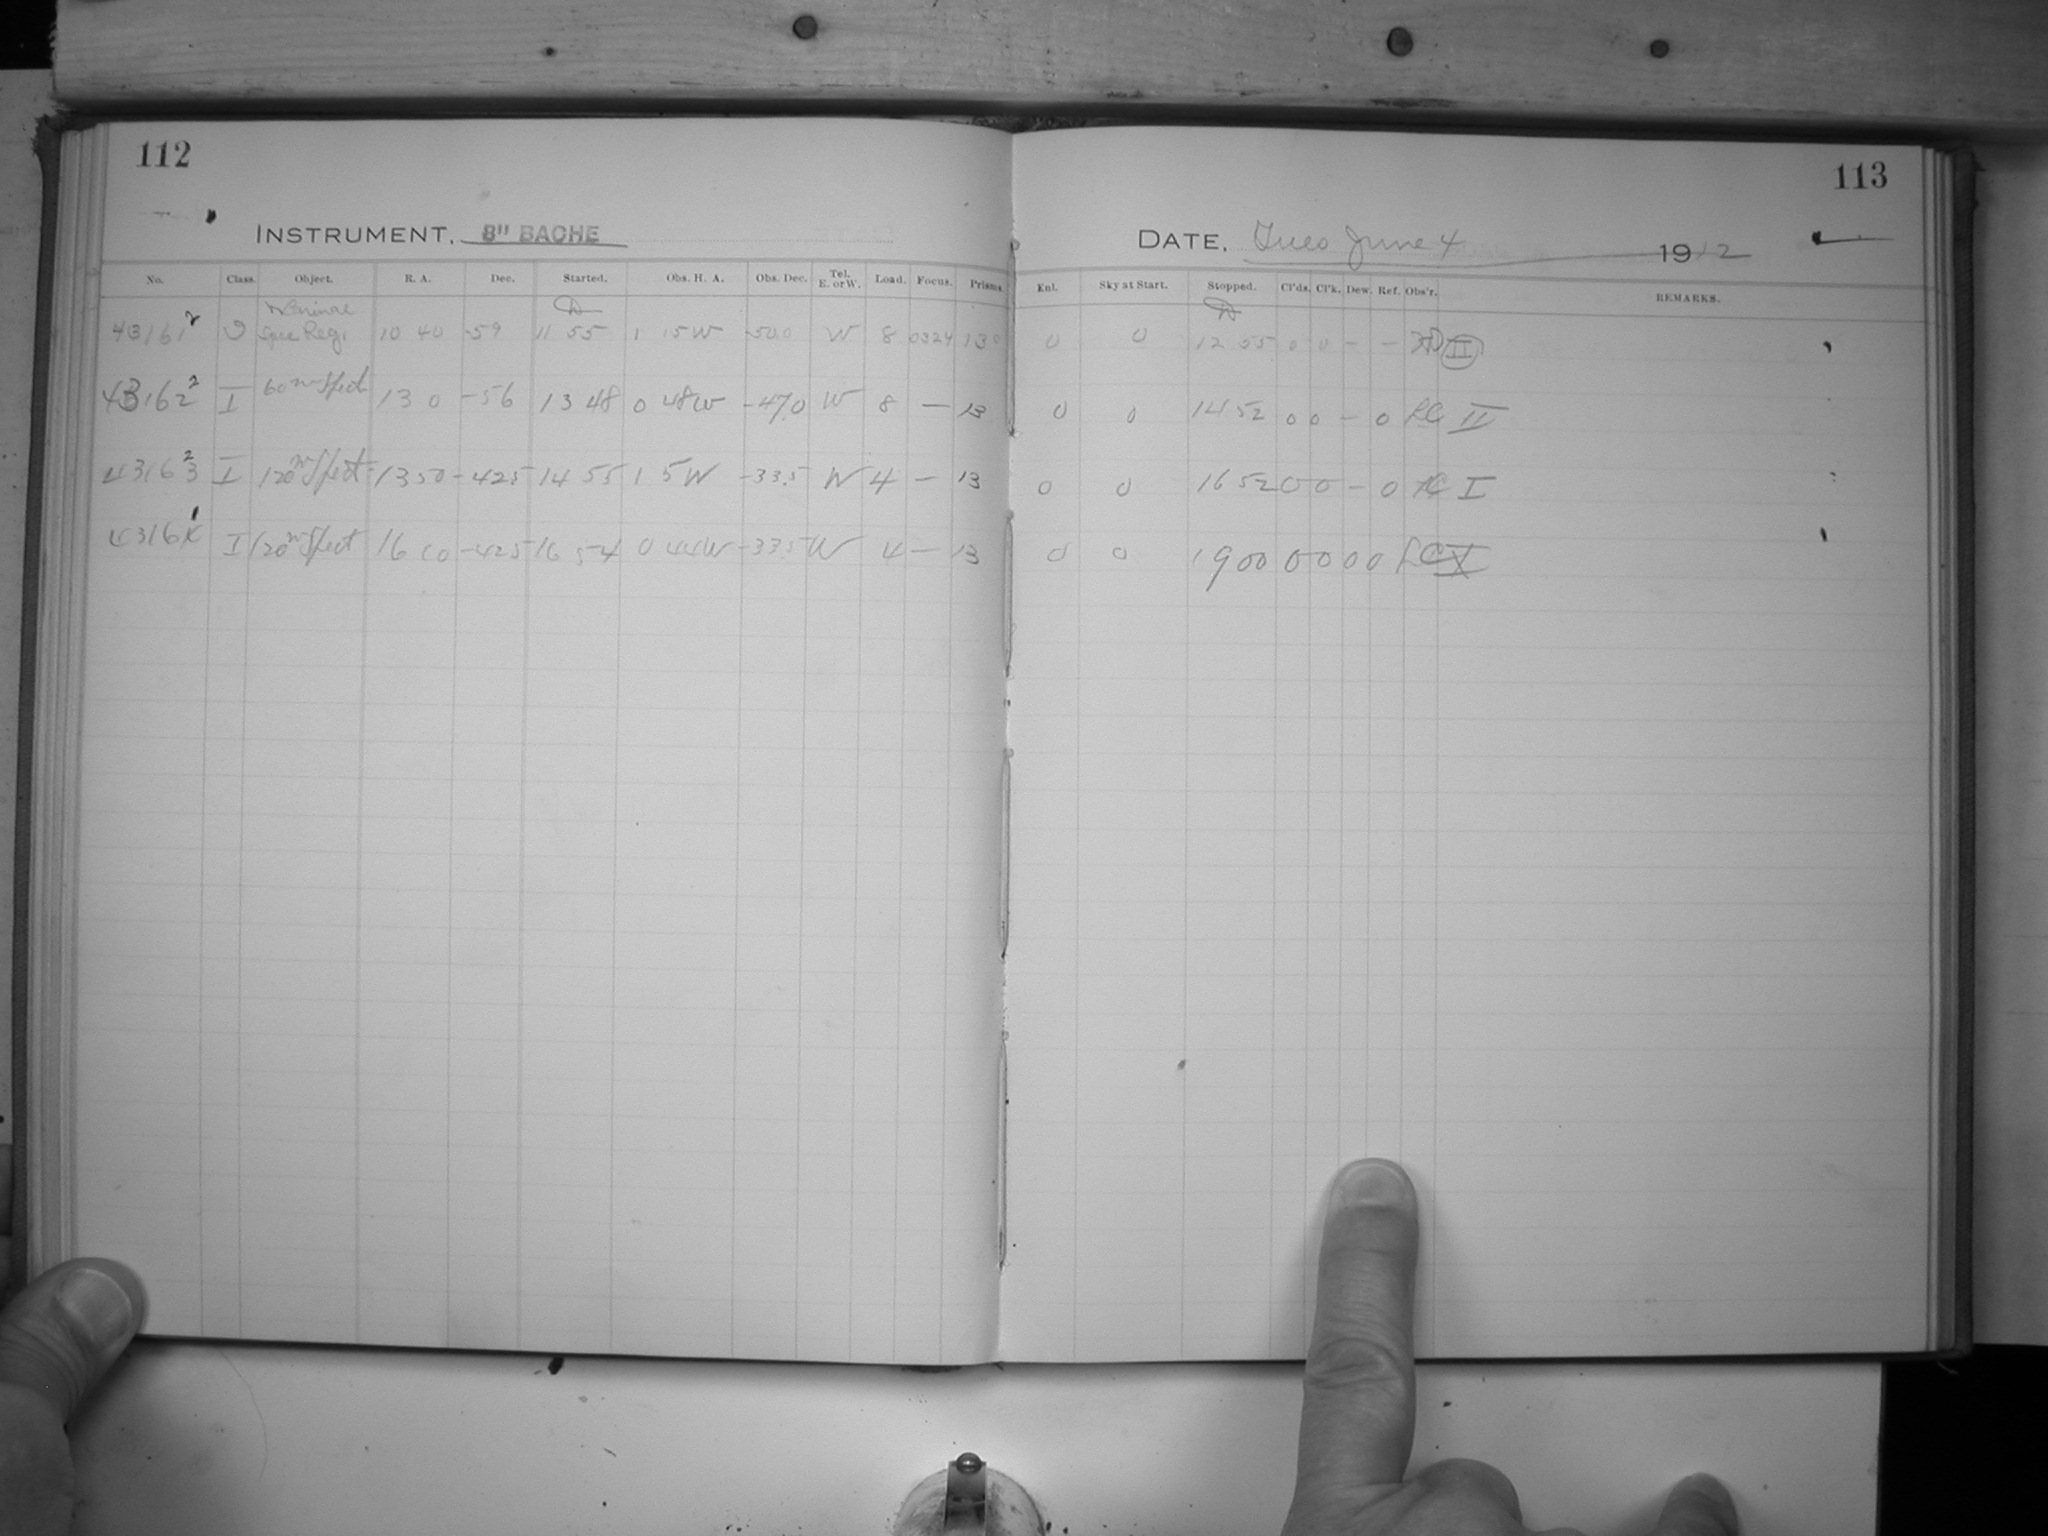 112
113
INSTRUMENT, 8" BACHE
DATE, Tues June 4 1912
No. Class. Object. R. A. Dec. Started. Obs. H. A. Obs. Dec. Tel. E. or W. Load. Focus. Prisms.
Knl. Sky at Start. Stopped. Cl'ds. Cl'k. Dew. Ref. Obs'r. REMARKS.
43161 2 10 40 -59 11 55 1 15 W -50.0 W 8 0324 13 0 0 12 55 0 0 - - II
43162 2 I 60 m Spect 13 0 -56 13 48 0 48 W -47.0 W 8 — 13 0 0 14 52 0 0 - 0 LC II
43163 2 I 120 m Spect 13 50 -42.5 14 55 1 5 W -33.5 W 4 — 13 0 0 16 52 0 0 - 0 I
4316 1 I 120 m Spect 16 10 -42.5 16 54 0 44 W -33.5 W 4 — 13 0 0 19 00 0 0 0 0 LC